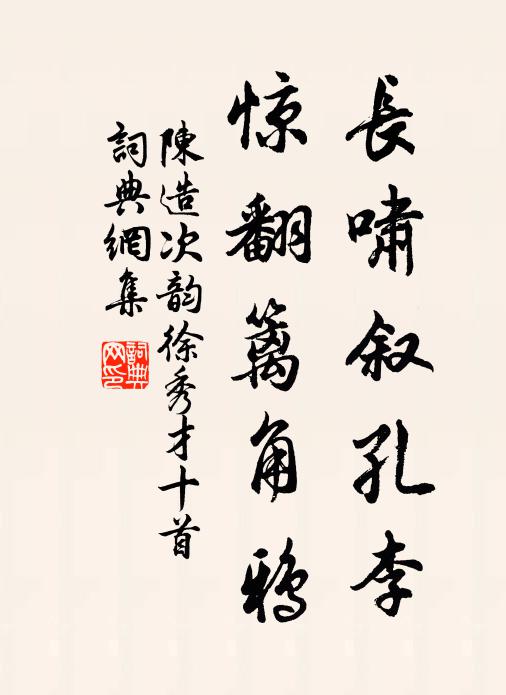 長嘯叙孔李
惊翻篱角鸦
陳造次韵徐秀才十首
詞典網集
詞典
网印